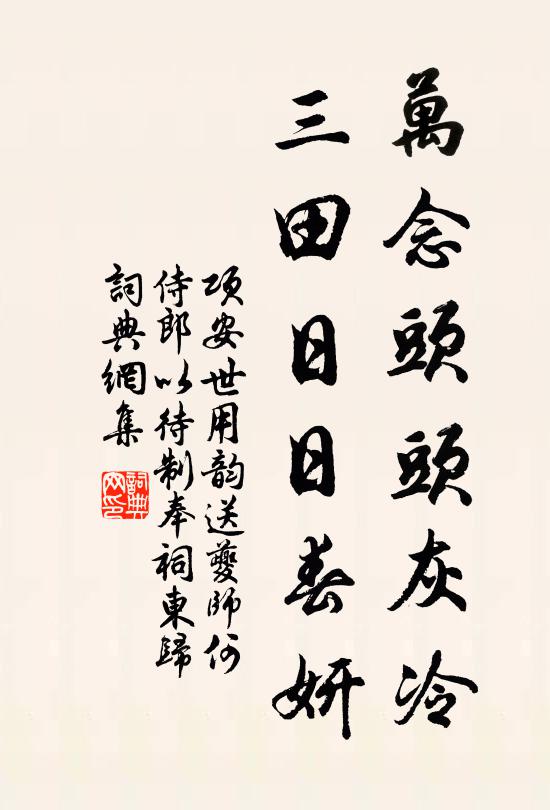 萬念頭頭灰冷
三田日日春妍
項安世用韵送夔師何
侍郎以待制奉祠東歸
詞典網集
詞典網印